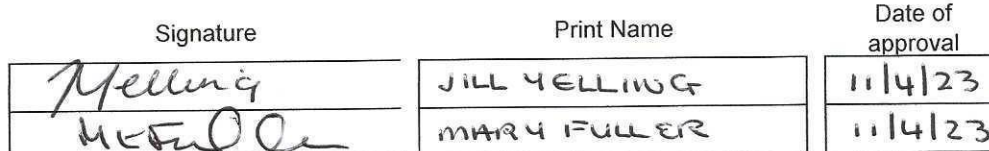 Signature Print Name Date of
approval
Yelling JILL YELLING 11/4/23
MARY FULLER 11/4/23